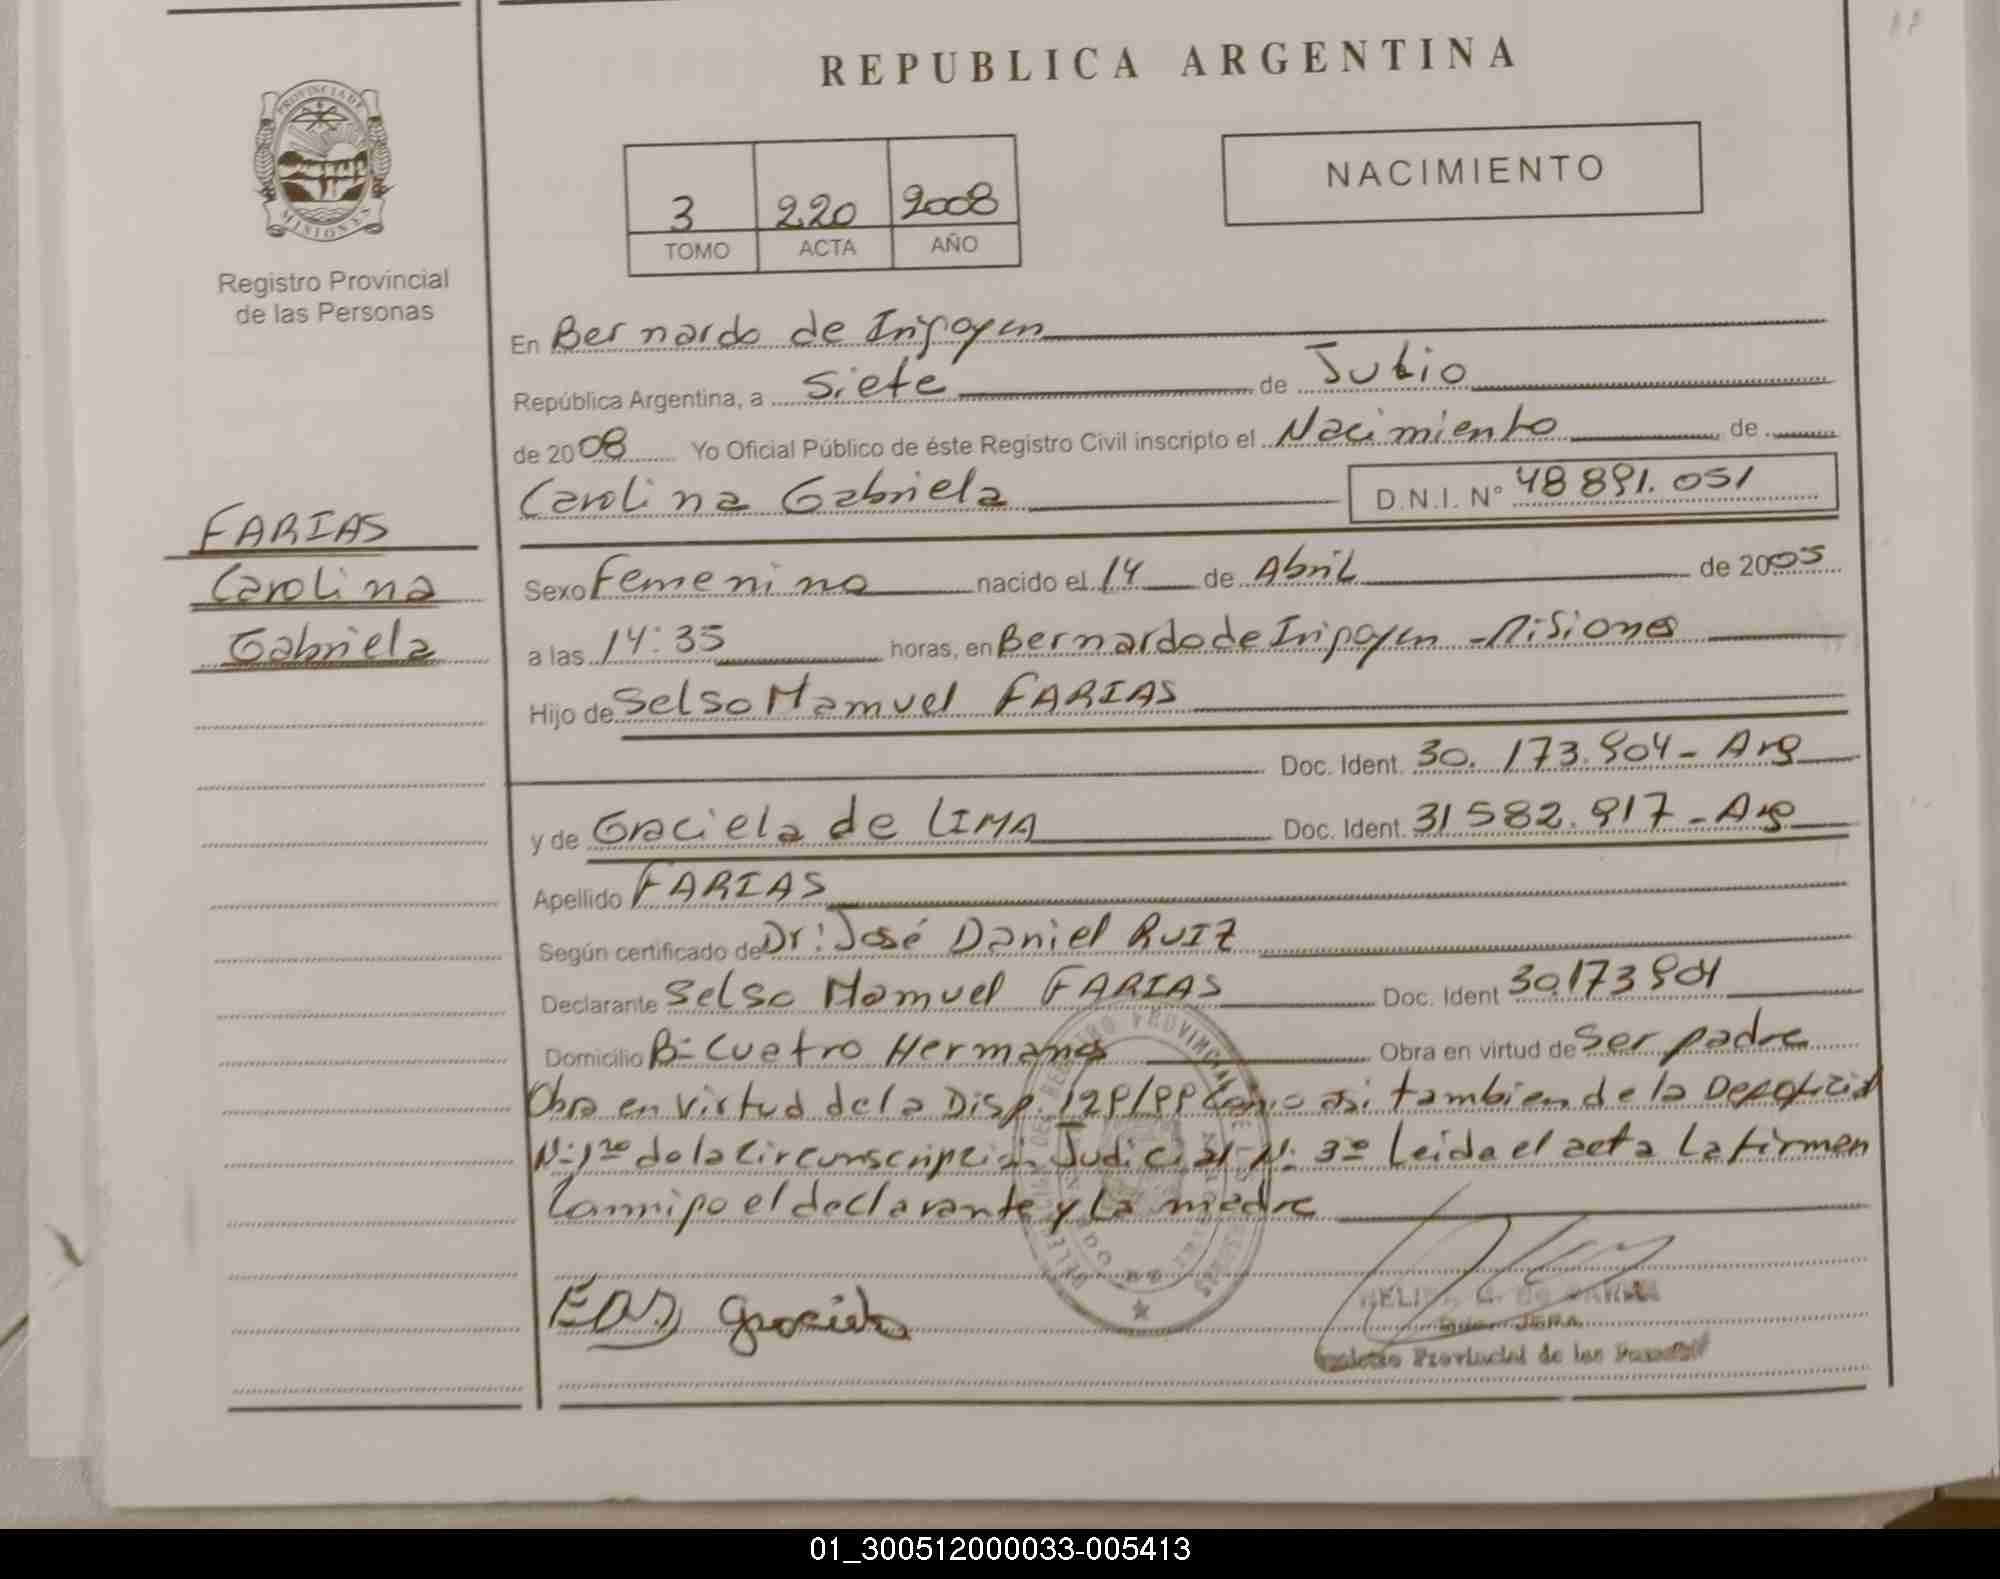 REPUBLICA ARGENTINA
PROVINCIA DE
MISIONES
Registro Provincial
de las Personas
3 220 2008
TOMO ACTA AÑO
NACIMIENTO
En Bernardo de Irigoyen
República Argentina, a Siete de Julio
de 2008 Yo Oficial Público de éste Registro Civil inscripto el Nacimiento de
Carolina Gabriela D.N.I. N° 48 891.051
FARIAS
Carolina
Gabriela
Sexo Femenino nacido el 14 de Abril de 2005
a las 14:35 horas, en Bernardo de Irigoyen - Misiones
Hijo de Selso Mamuel FARIAS
Doc. Ident. 30.173.904 - Arg
y de Graciela de LIMA Doc. Ident. 31 582.917 - Arg
Apellido FARIAS
Según certificado de Dr: José Daniel RUIZ
Declarante Selso Mamuel FARIAS Doc. Ident 30.173 904
Domicilio B= Cuatro Hermanos Obra en virtud de Ser padre
Obra en virtud de la Disp. como asi tambien de la
de la Circunscripcion Judicial N: 3º Leida el acta La firmen
Conmigo el declarante y La madre
Graciela
Registro Provincial de las Personas
01_300512000033-005413